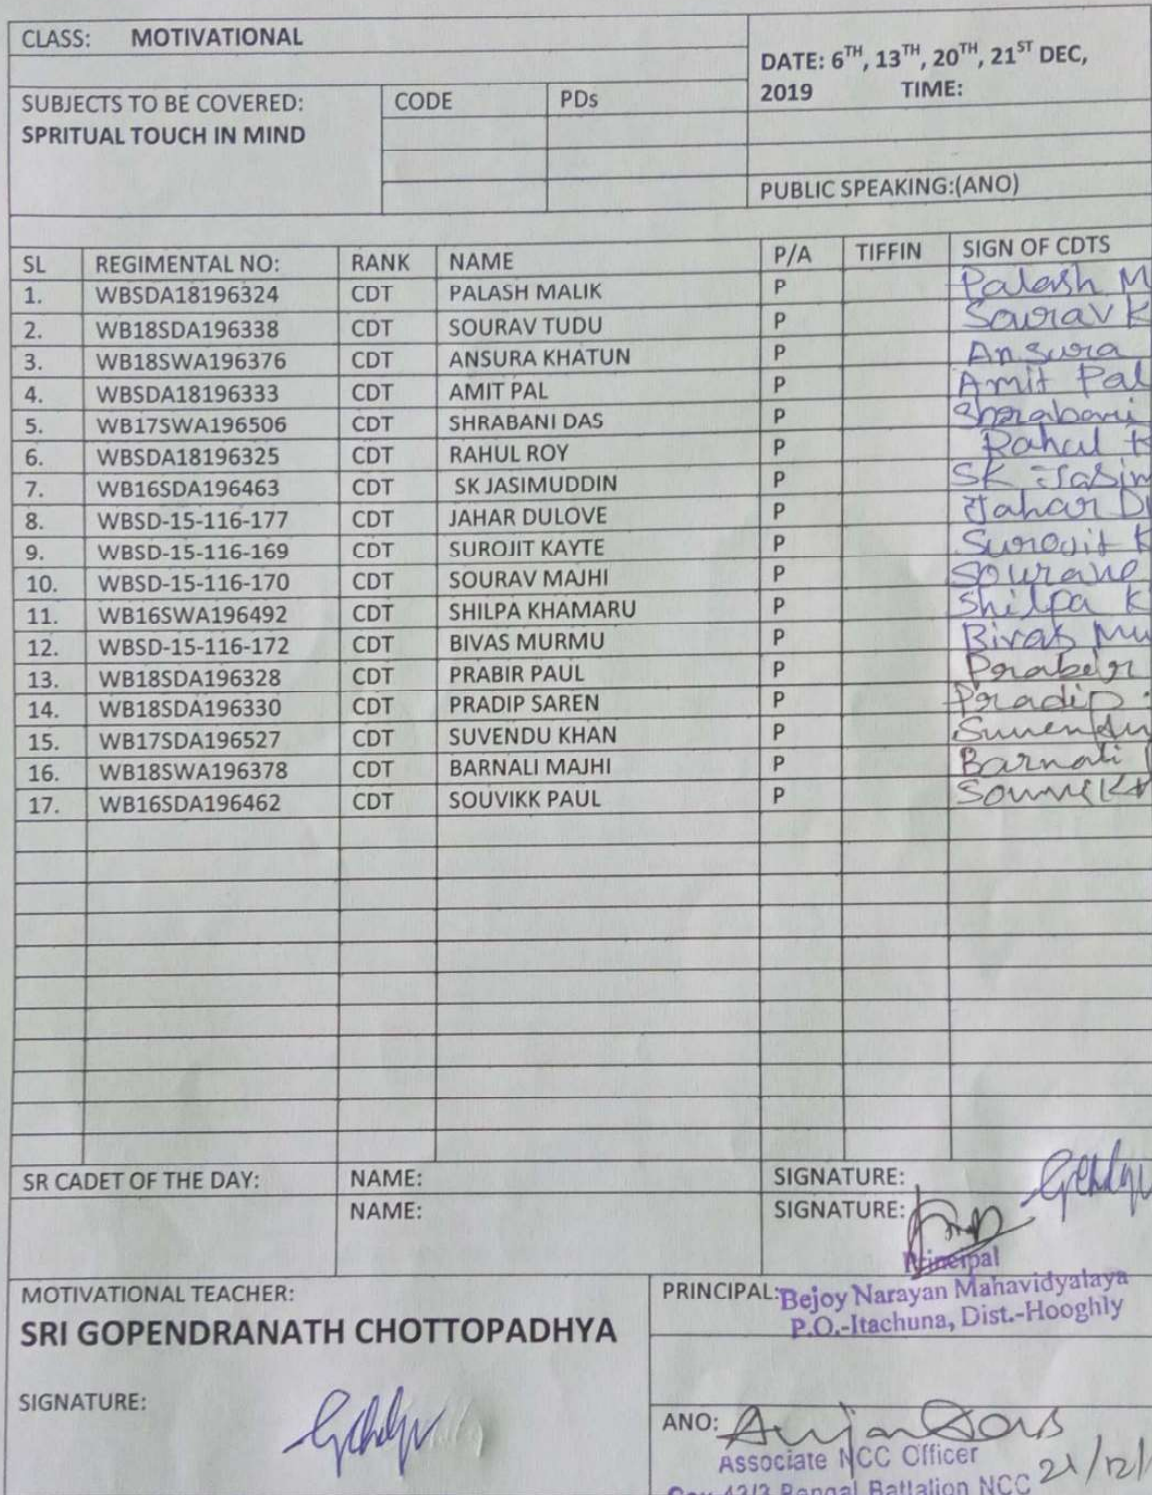 CLASS: MOTIVATIONAL
DATE: 6TH, 13TH, 20TH, 21ST DEC,
2019 TIME:
SUBJECTS TO BE COVERED: CODE PDs
SPRITUAL TOUCH IN MIND
PUBLIC SPEAKING:(ANO)
SL REGIMENTAL NO: RANK NAME P/A TIFFIN SIGN OF CDTS
1. WBSDA18196324 CDT PALASH MALIK P Palash M
2. WB18SDA196338 CDT SOURAV TUDU P Sourav K
3. WB18SWA196376 CDT ANSURA KHATUN P Ansura
4. WBSDA18196333 CDT AMIT PAL P Amit Pal
5. WB17SWA196506 CDT SHRABANI DAS P Shrabani
6. WBSDA18196325 CDT RAHUL ROY P Rahul
7. WB16SDA196463 CDT SK JASIMUDDIN P SK Jasim
8. WBSD-15-116-177 CDT JAHAR DULOVE P Jahar D
9. WBSD-15-116-169 CDT SUROJIT KAYTE P Surojit K
10. WBSD-15-116-170 CDT SOURAV MAJHI P
11. WB16SWA196492 CDT SHILPA KHAMARU P Shilpa K
12. WBSD-15-116-172 CDT BIVAS MURMU P Bivas Mu
13. WB18SDA196328 CDT PRABIR PAUL P Prabir
14. WB18SDA196330 CDT PRADIP SAREN P Pradip
15. WB17SDA196527 CDT SUVENDU KHAN P Suvendu
16. WB18SWA196378 CDT BARNALI MAJHI P Barnali
17. WB16SDA196462 CDT SOUVIKK PAUL P
SR CADET OF THE DAY: NAME: SIGNATURE:
NAME: SIGNATURE:
Principal
MOTIVATIONAL TEACHER: PRINCIPAL: Bejoy Narayan Mahavidyalaya
SRI GOPENDRANATH CHOTTOPADHYA P.O.-Itachuna, Dist.-Hooghly
SIGNATURE:
ANO: Anjan Das
Associate NCC Officer 21/12/
Bengal Battalion NCC